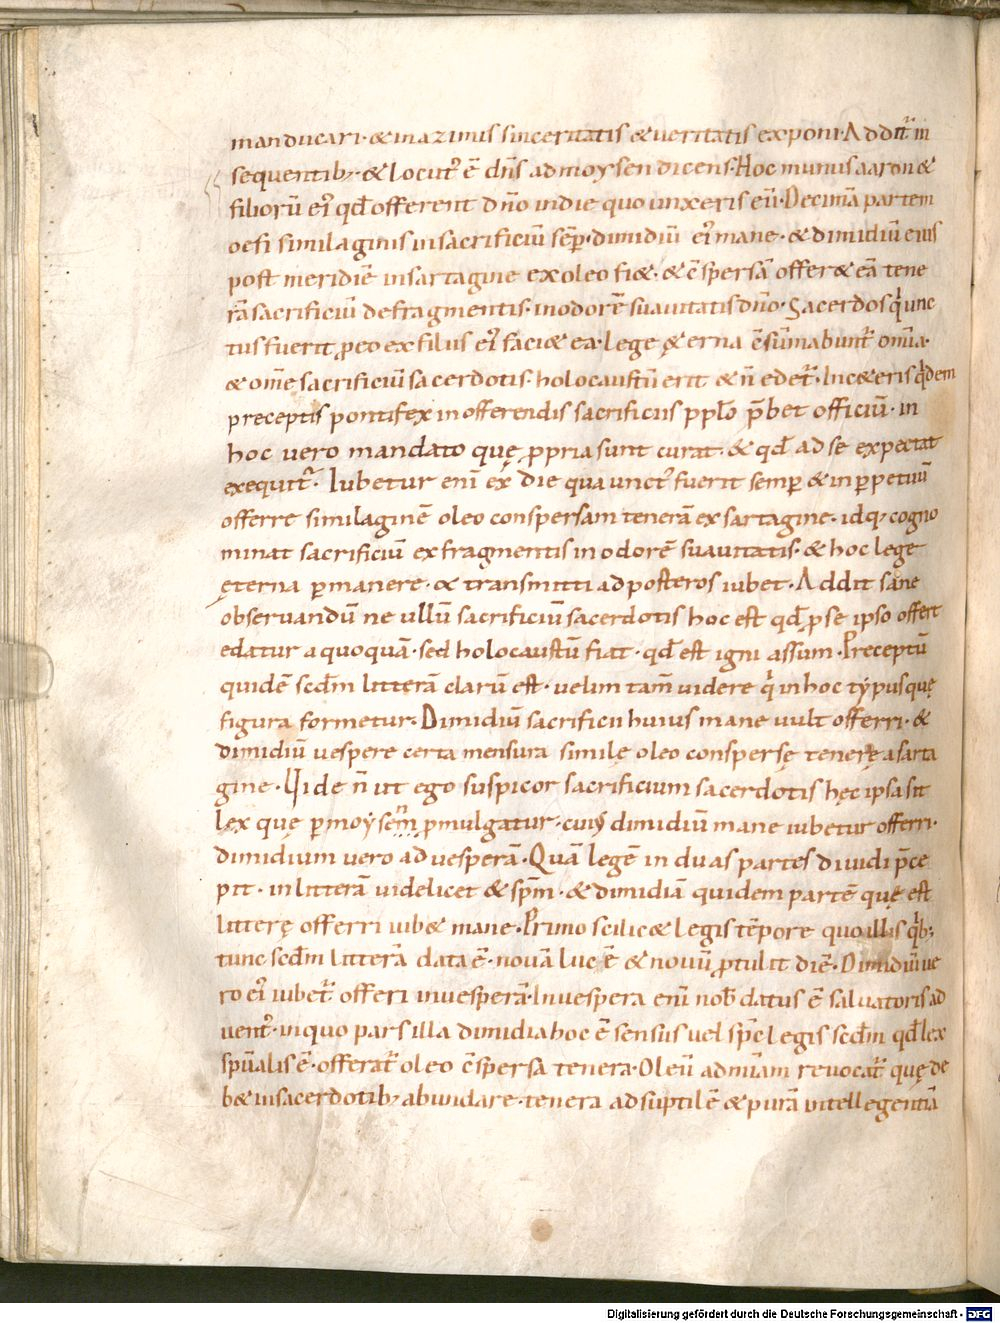 manducari · & in azimis sinceritatis & veritatis exponi · Addit᷑ in
sequentib; · & locut᷒ ē dn̄s ad moysen dicens · Hoc munus aaron &
filiorū ei᷒ qd̄ offerent dn̄o in die quo unxeris eū · Decimā partem
oefi similaginis in sacrificiū sēp · dimidiū ei᷒ mane · & dimidiū eius
post meridiē in sartagine ex oleo fi& · & c̄spersā offer& eā tene
rā sacrificiū de fragmentis · in odorē suavitatis dn̄o · Sacerdos qͥ unc
tus fuerit ꝓ eo ex filiis ei᷒ faci& ea · lege ęterna c̄sūmabunt᷑ om̄ia ·
& om̄e sacrificiū sacerdotis · holocaustū erit & n̄ edet᷑ · In c&eris qͥdem
preceptis pontifex in offerendis sacrificiis ppl̄o p̄bet officiū · in
hoc vero mandato quę ꝓpria sunt curat · & qd̄ ad se expectat
exequit᷑ · Iubetur enī ex die qua unct᷒ fuerit semꝑ & in ꝑpetuū
offerre similaginē oleo conspersam tenerā ex sartagine · idq; cogno
minat sacrificiū ex fragmentis in odorē suavitatis · & hoc lege
ęterna ꝑmanere · & transmitti ad posteros iubet · Addit sane
observandū ne ullū sacrificiū sacerdotis hoc est qd̄ ꝓ se ipso offert
edatur a quoquā · sed holocaustū fiat · qd̄ est igni assum · Preceptū
quidē scd̄m litterā clarū est · velim tam̄ videre qͥ in hoc typus quę
figura formetur · Dimidiū sacrificii huius mane vult offerri · &
dimidiū vespere certa mensura similę oleo conspersę tenerę a sarta
gine · Vide n̄ ut ego suspicor sacrificium sacerdotis hęc ipsa sit
lex quę ꝑ moysem ꝓmulgatur · cui᷒ dimidiū mane iubetur offerri ·
dimidium vero ad vesperā · Quā legē in duas partes dividi p̄ce
pit · in litterā videlicet & sp̄m · & dimidiā quidem partē quę est
litterę offerri iub& mane · Primo scilic& legis tēpore quo illis qͥb;
tunc scd̄m litterā data ē · novā lucē & novū ꝓtulit diē · Dimidiū ve
ro ei᷒ iubet᷑ offeri in vesperā · In vespera enī nob̄ datus ē salvatoris ad
vent᷒ · in quo pars illa dimidia hoc ē sensus vel sp̄c legis scd̄m qd̄ lex
spūalis ē · offerat᷑ oleo c̄spersa tenera · Oleū ad mīam revocat᷑ quę de
b& in sacerdotib; abundare · tenera ad suptilē & purā intellegentiā
Digitalisierung gefördert durch die Deutsche Forschungsgemeinschaft - DFG